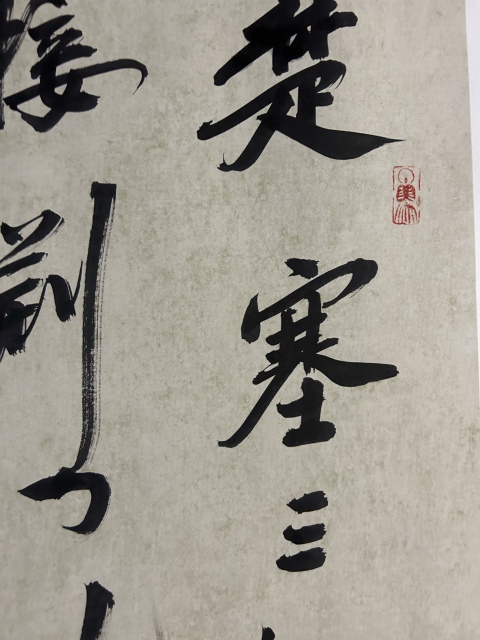 楚塞三
接荆门